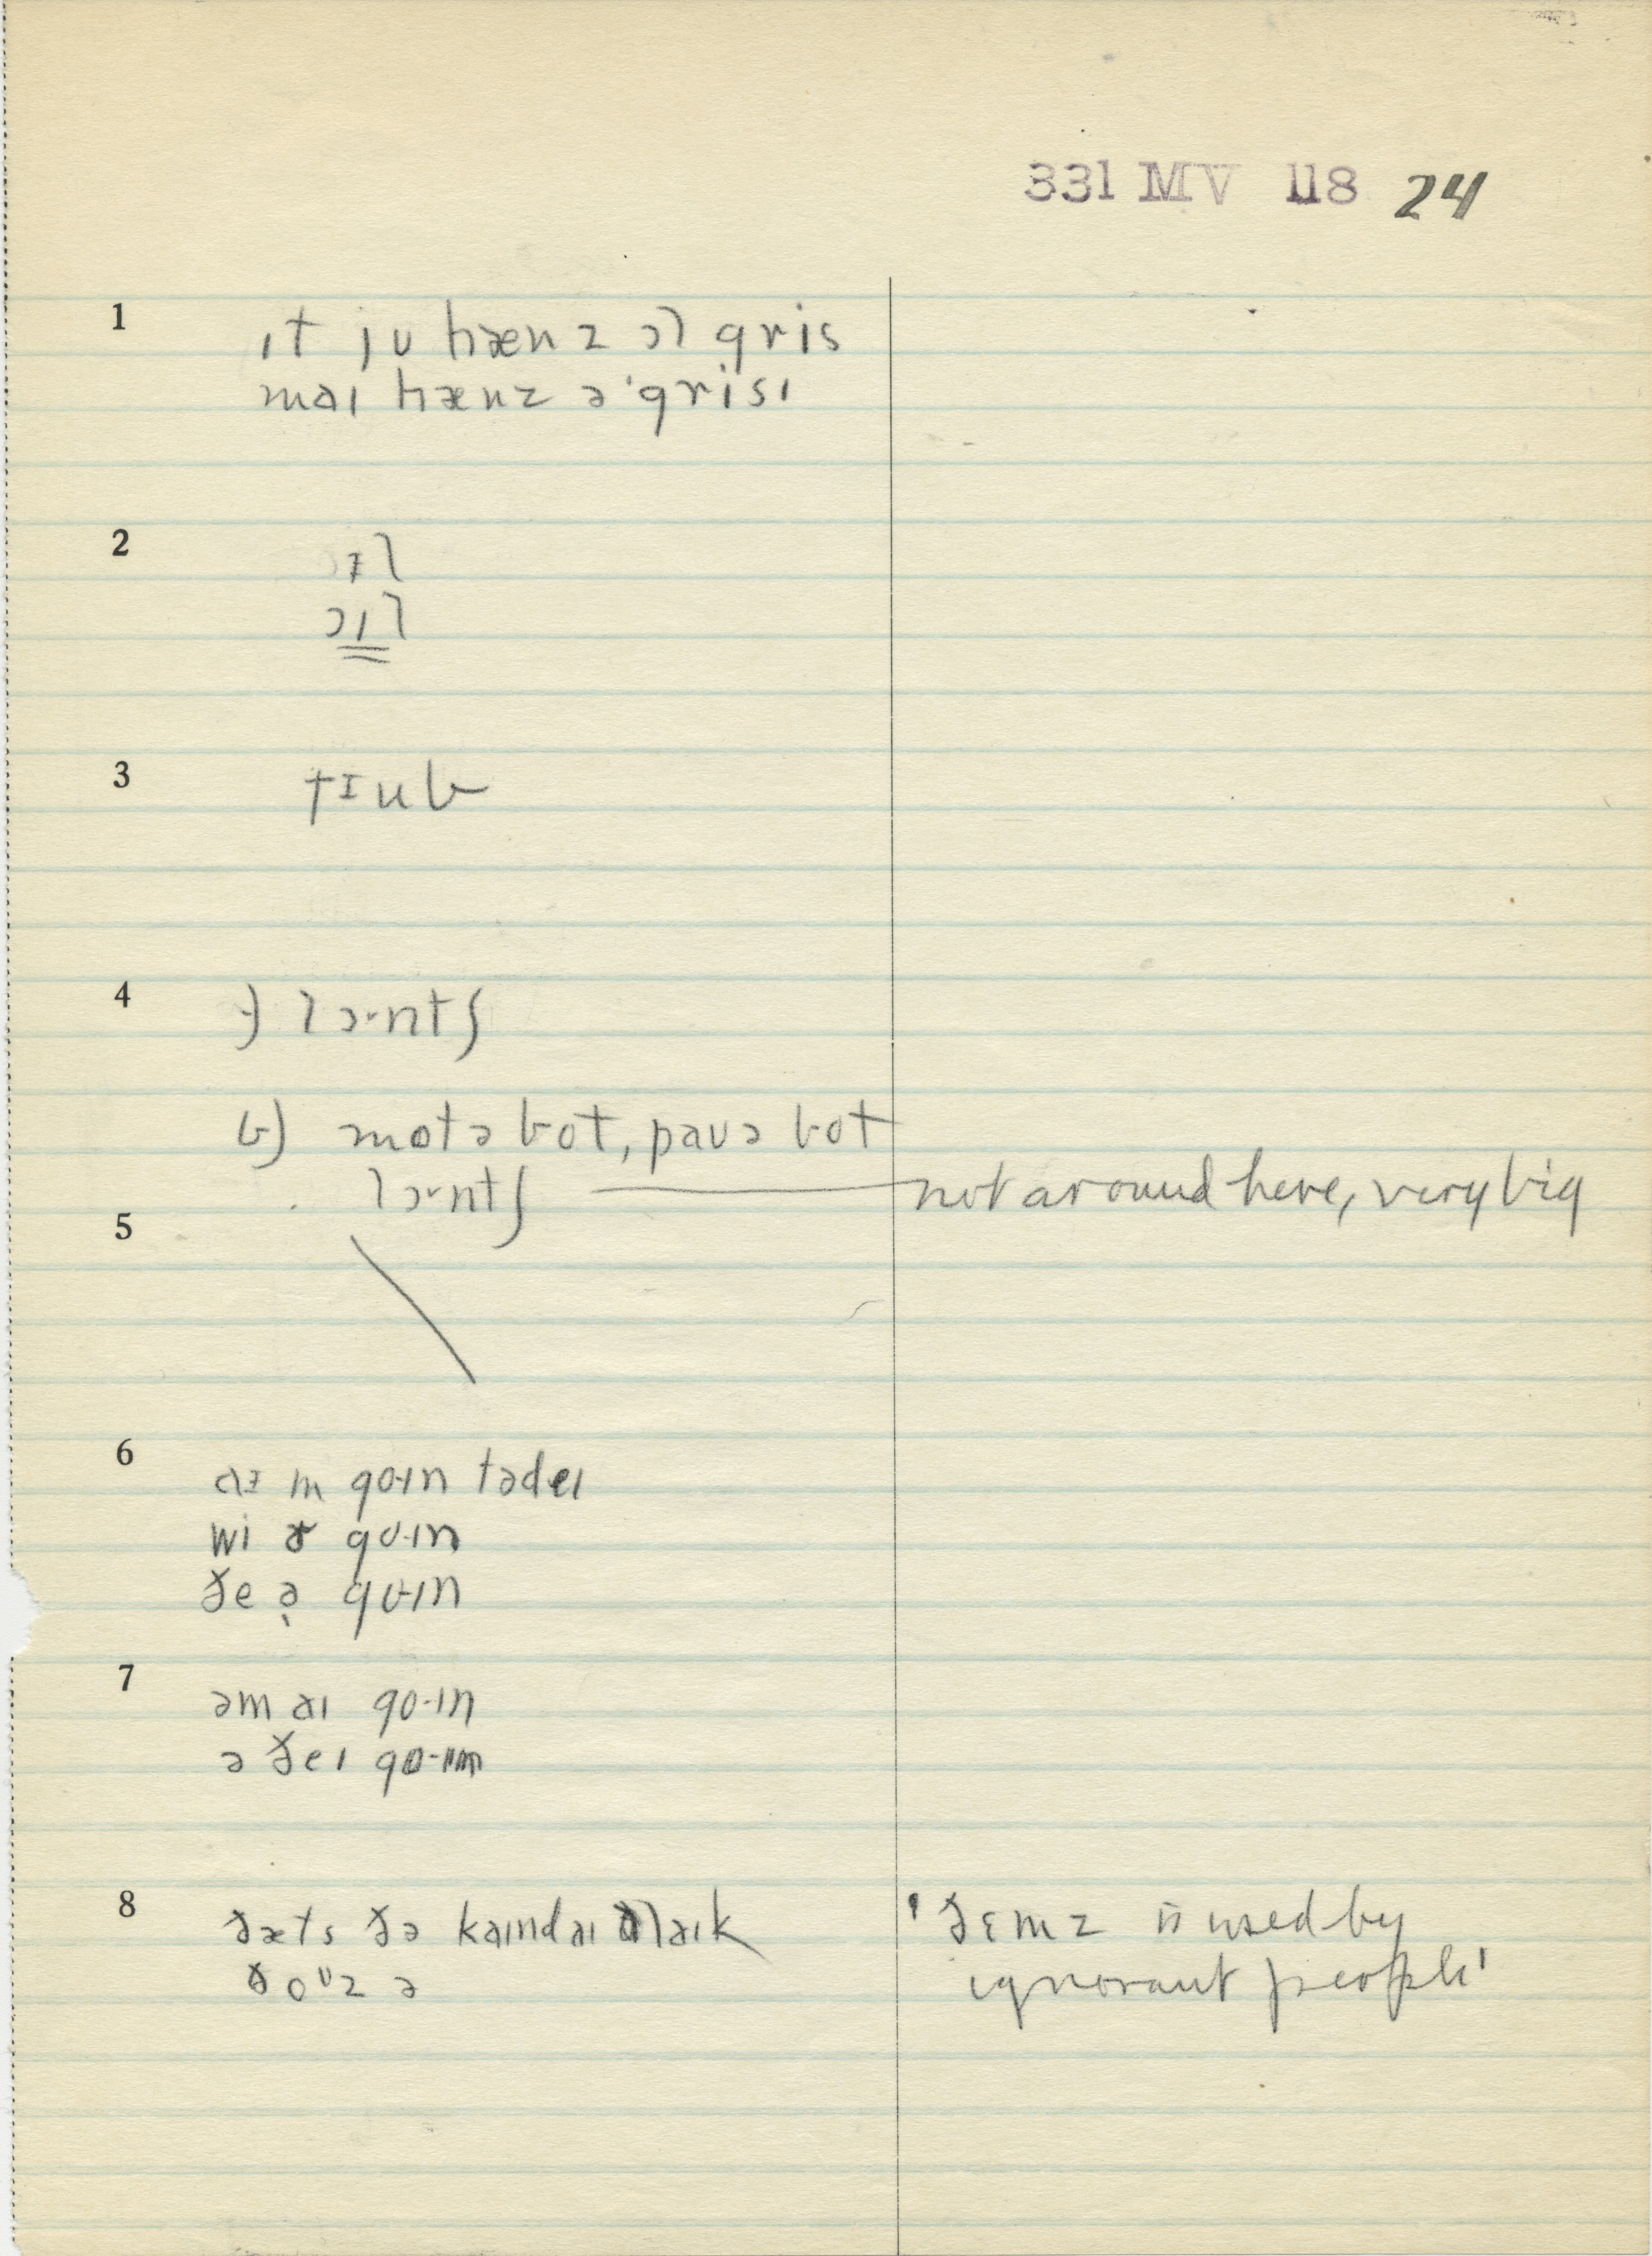 331 MV 118 24
1 ɪt ju hænz ɔl gris
maɪ hænz ə ˈgrisɪ
2 ɔɪl
ɔɪl
3 tɪub
4 a) lɔ·ntʃ
b) motə bot, pauə bot
lɔ·ntʃ —— not around here, very big
5
6 aɪ m go·ɪn tədeɪ
wi ɚ go·ɪn
ðe ə̣ go·ɪn
7 əm aɪ go·ɪn
ə ðeɪ go·ɪn
8 ðæts ðə kaɪnd aɪ laɪk
ðoᶷz ə
'ðɛmz is used by
ignorant people'